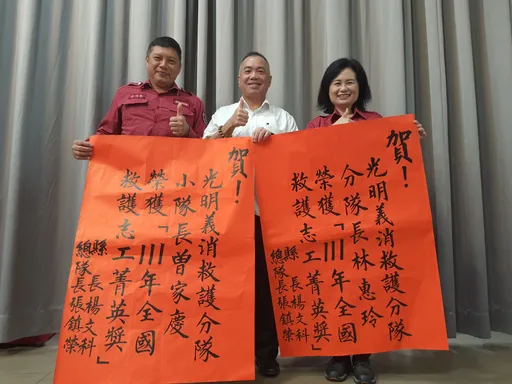 賀！
光明義消救護分隊
小隊長曾家慶
榮獲「111年全國
救護志工菁英獎」
縣長楊文科
總隊長張鎮榮
賀！
光明義消救護分隊
分隊長林惠玲
榮獲「111年全國
救護志工菁英獎」
縣長楊文科
總隊長張鎮榮